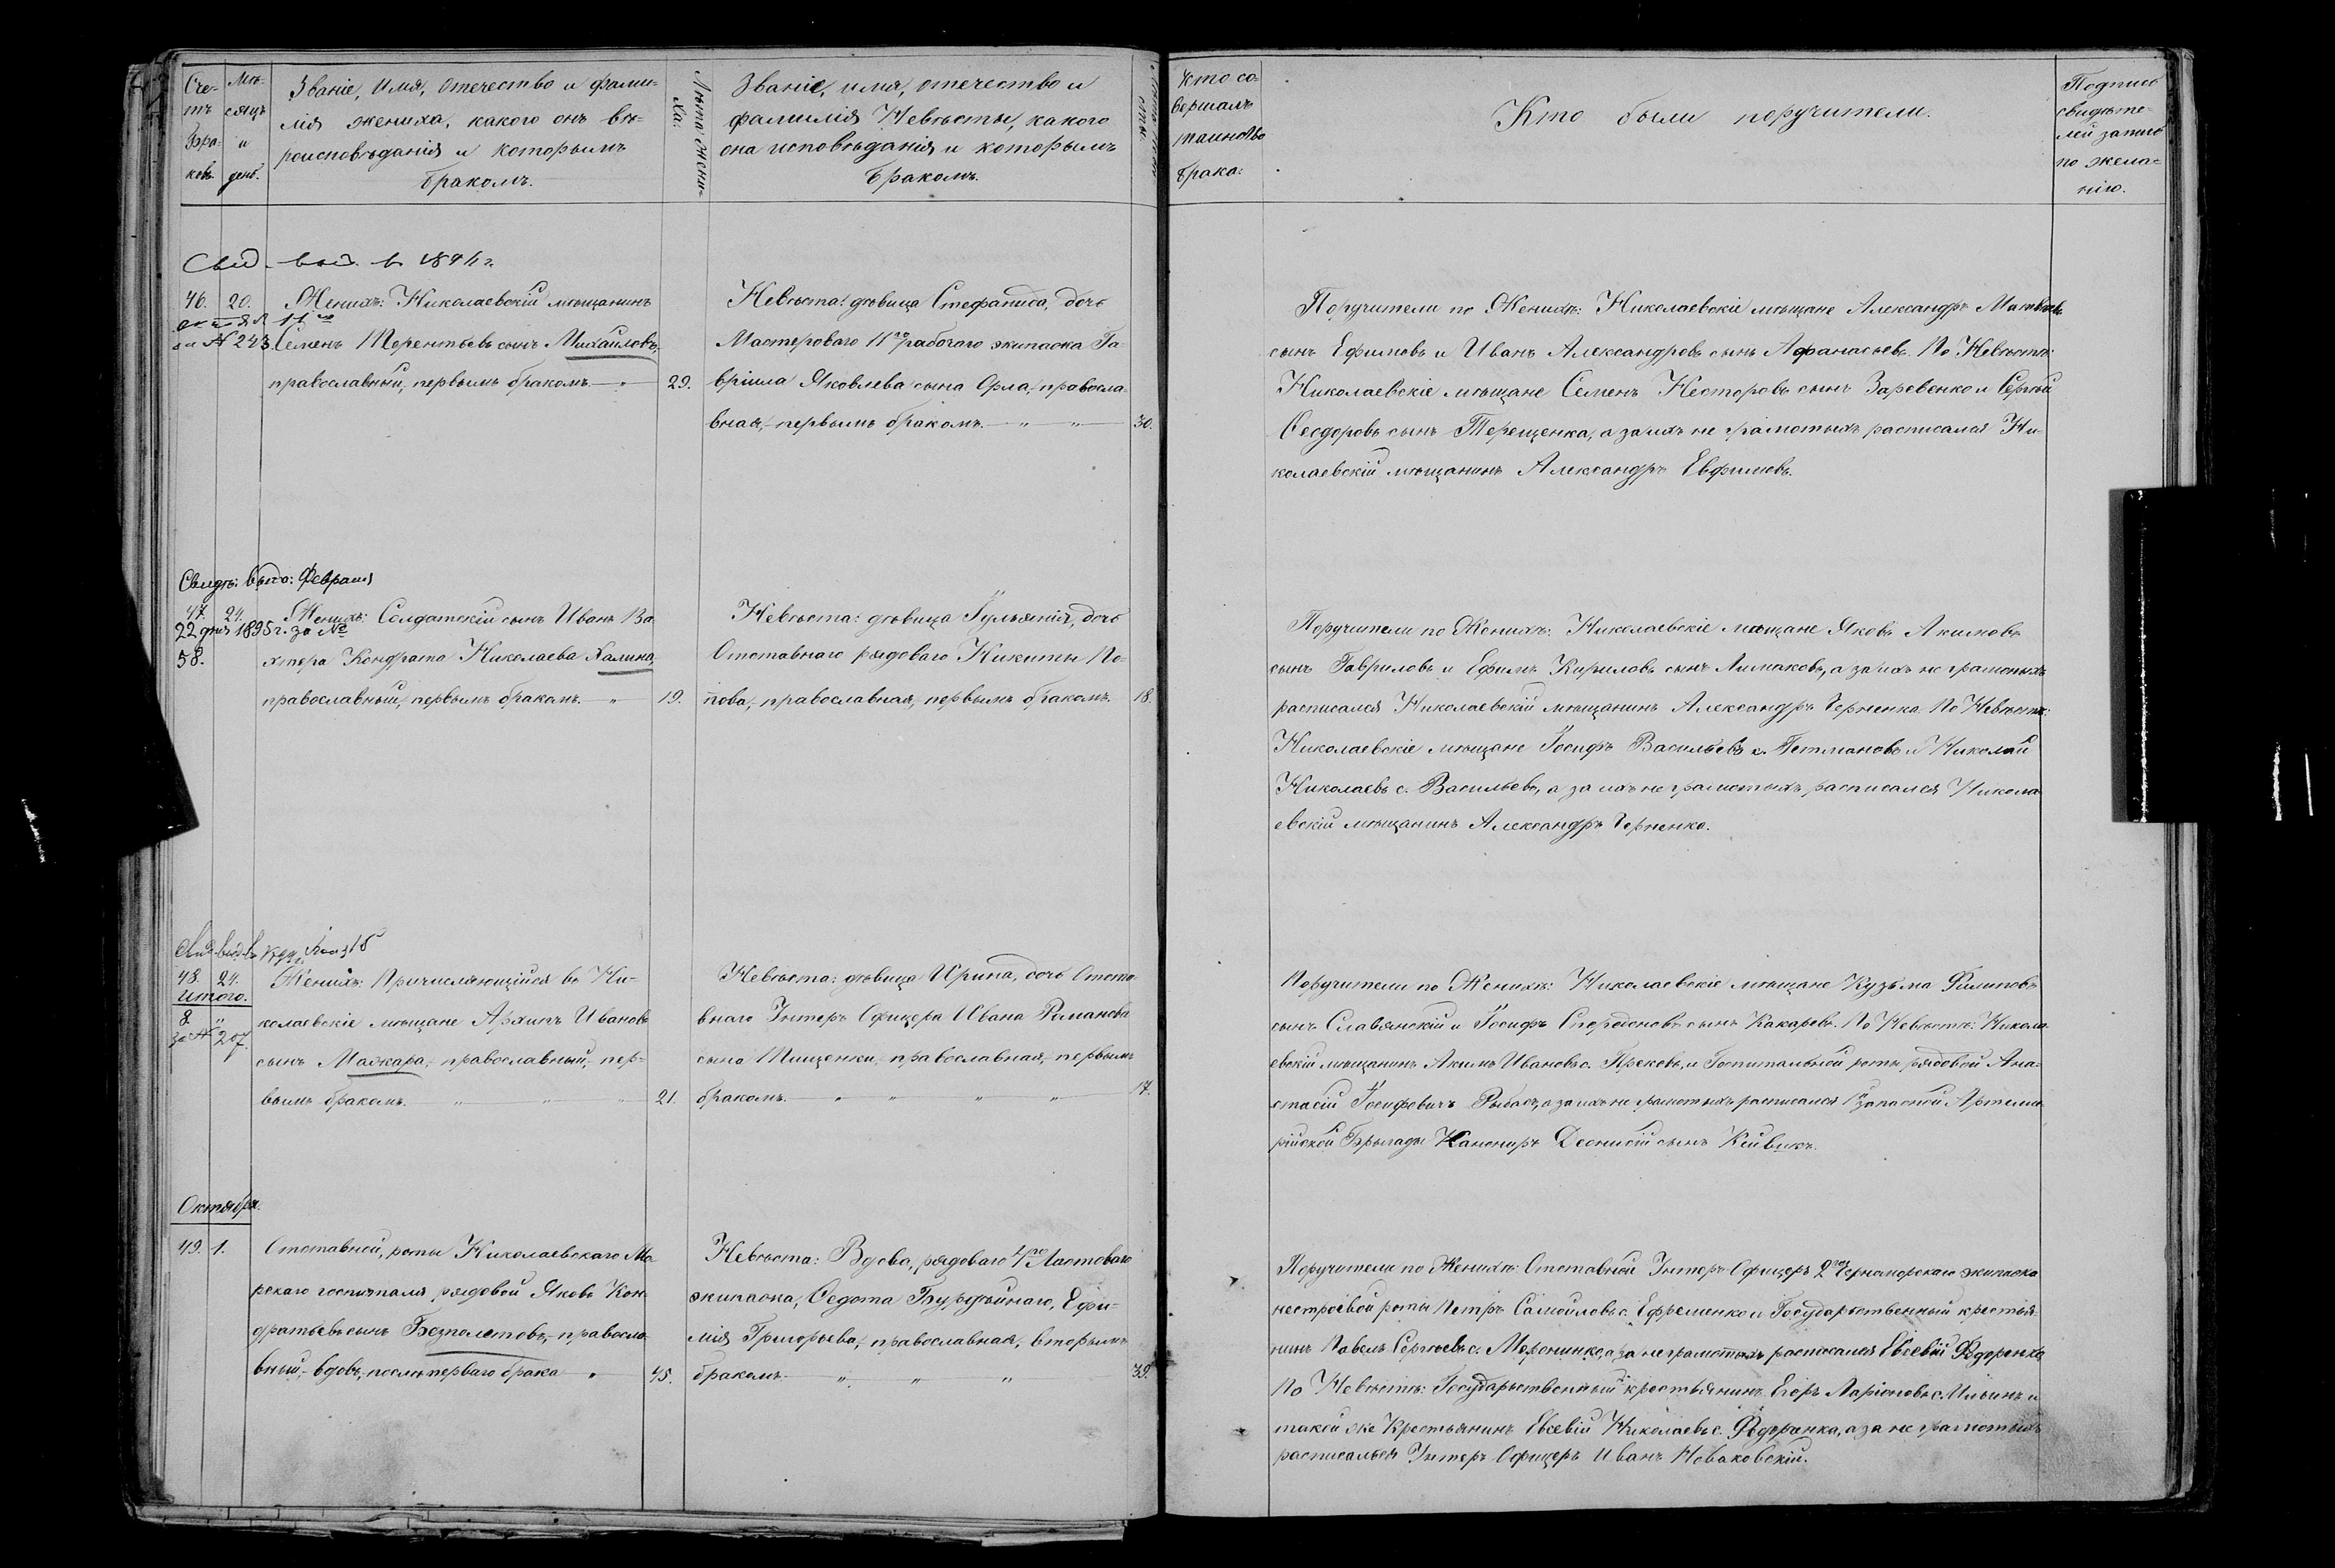 Сче-
тъ
Бра-
ковъ
Мѣ-
сяцъ
и
день.
Званіе, Имя, Отечество и фами-
лія жениха, какого онъ вѣ-
роисповѣданія и которымъ
бракомъ.
Лѣта Жени-
ха:
Званіе, имя, отечество и
фамилія Невѣсты, какого
она исповѣданія и которымъ
бракомъ.
Кто со-
вершалъ
таинство
брака:
Кто были поручители.
Подпись
свидѣте-
лей записи
по жела-
нію.
46. 20.
за № 243.
Женихъ: Николаевскій мѣщанинъ
Семенъ Терентьевъ сынъ Михайловъ,
православный, первымъ бракомъ. 29.
Невѣста: дѣвица Стефанида, дочь
Мастероваго 11го рабочаго экипажа Га-
вріила Яковлева сына Орла, правосла-
вная, первымъ бракомъ. 30.
Поручители по Женихѣ: Николаевскіе мѣщане Александръ Матвѣевъ
сынъ Ефимовъ и Иванъ Александровъ сынъ Афанасьевъ. По Невѣстѣ:
Николаевскіе мѣщане Семенъ Несторовъ сынъ Заревенко и Сергѣй
Ѳеодоровъ сынъ Терещенка, а за ихъ не грамотныхъ расписался Ни-
колаевскій мѣщанинъ Александръ Евфимовъ.
Свидѣ: выдо: Февраля
22 дня 1895 г. за №
58.
47. 24.
Женихъ: Солдатскій сынъ Иванъ Ва
хтера Кондрата Николаева Халина,
православный, первымъ бракомъ. 19.
Невѣста: дѣвица Іульянія, дочь
Отставнаго рядоваго Никиты По-
пова, православная, первымъ бракомъ. 18.
Поручители по Женихѣ: Николаевскіе мѣщане Яковъ Акимовъ
сынъ Гавриловъ и Ефимъ Кириловъ сынъ Лимаковъ, а за ихъ не грамотныхъ
расписался Николаевскій мѣщанинъ Александръ Черненка. По Невѣстѣ:
Николаевскіе мѣщане Іосифъ Васильевъ с. Гетмановъ и Николай
Николаевъ с. Васильевъ, а за ихъ не грамотныхъ расписался Никола
евскій мѣщанинъ Александръ Черненко.
48. 24.
Итого.
8. "
за № 207.
Женихъ: Причисляющійся въ Ни-
колаевскіе мѣщане Архипъ Ивановъ
сынъ Мажара, православный, пер-
вымъ бракомъ. 21.
Невѣста: дѣвица Ирина, дочь Отста-
внаго Унтеръ Офицера Ивана Романова
сына Тищенки, православная, первымъ
бракомъ. 17.
Поручители по Женихѣ: Николаевскіе мѣщане Кузьма Филиповъ
сынъ Славянскій и Іосифъ Спередоновъ сынъ Какаревъ. По Невѣстѣ: Никола
евскій мѣщанинъ Акимъ Ивановъ с. Грековъ, и Госпитальной роты рядовой Ана-
стасій Іосифовичъ Рыбасъ, а за ихъ не грамотныхъ расписался запасной Артеле-
рійской Брыгады Канониръ Деонисій сынъ Кійвикъ.
Октября.
49. 1.
Отставной, роты Николаевскаго Мо
рскаго госпиталя рядовой Яковъ Кон
дратьевъ сынъ Безполетовъ, правосла
вный, вдовъ, послѣ перваго брака 45.
Невѣста: Вдова, рядоваго 4го Ластоваго
экипажа, Ѳедота Бурдейнаго, Ефи-
мія Григорьева, православная, вторымъ
бракомъ. 39.
Поручители по Женихѣ: Отставной Унтеръ-Офицеръ 2го Черноморскаго экипажа
нестроевой роты Петръ Самойловъ с. Ефременко и Государственный крестья-
нинъ Павелъ Сергѣевъ с. Моронинко, а за не грамотныхъ расписался Евсевій Федоренко
По Невѣстѣ: Государственный крестьянинъ Егоръ Ларіоновъ с. Ильинъ и
такой же Крестьянинъ Евсевій Николаевъ с. Федоренка, а за не грамотныхъ
расписался Унтеръ Офицеръ Иванъ Новаковскій.